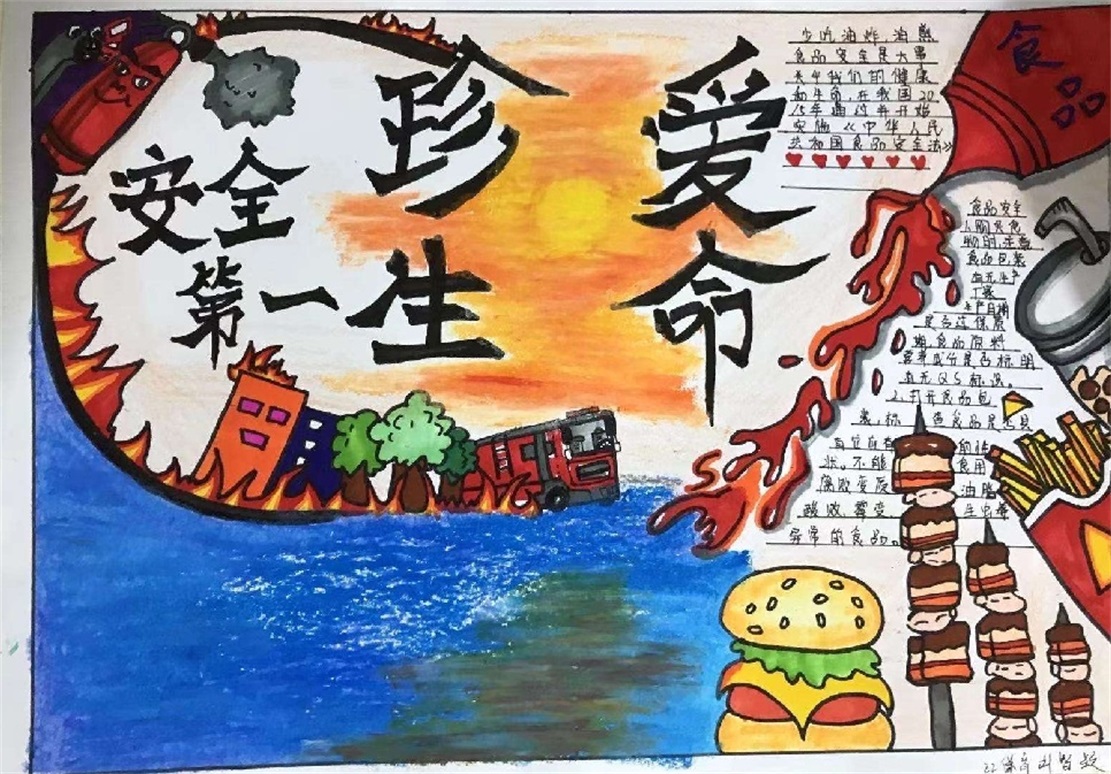 珍爱
生命
安全
第一
食品
少吃油炸,油熏
食品安全是大事
关乎我们的健康
和生命,在我国20
15年通过并开始
实施《中华人民
共和国食品安全法》
食品安全
1.购买食
物时,注意
食品包装
有无生产
厂家
生产日期
是否过保质
期,食品原料
营养成分是否标明
有无QS标志。
2.打开食品包
装,检查食品是否具
有它应有的性
状。不能食用
腐败变质 油脂
酸败霉变 生虫等
异常的食品。